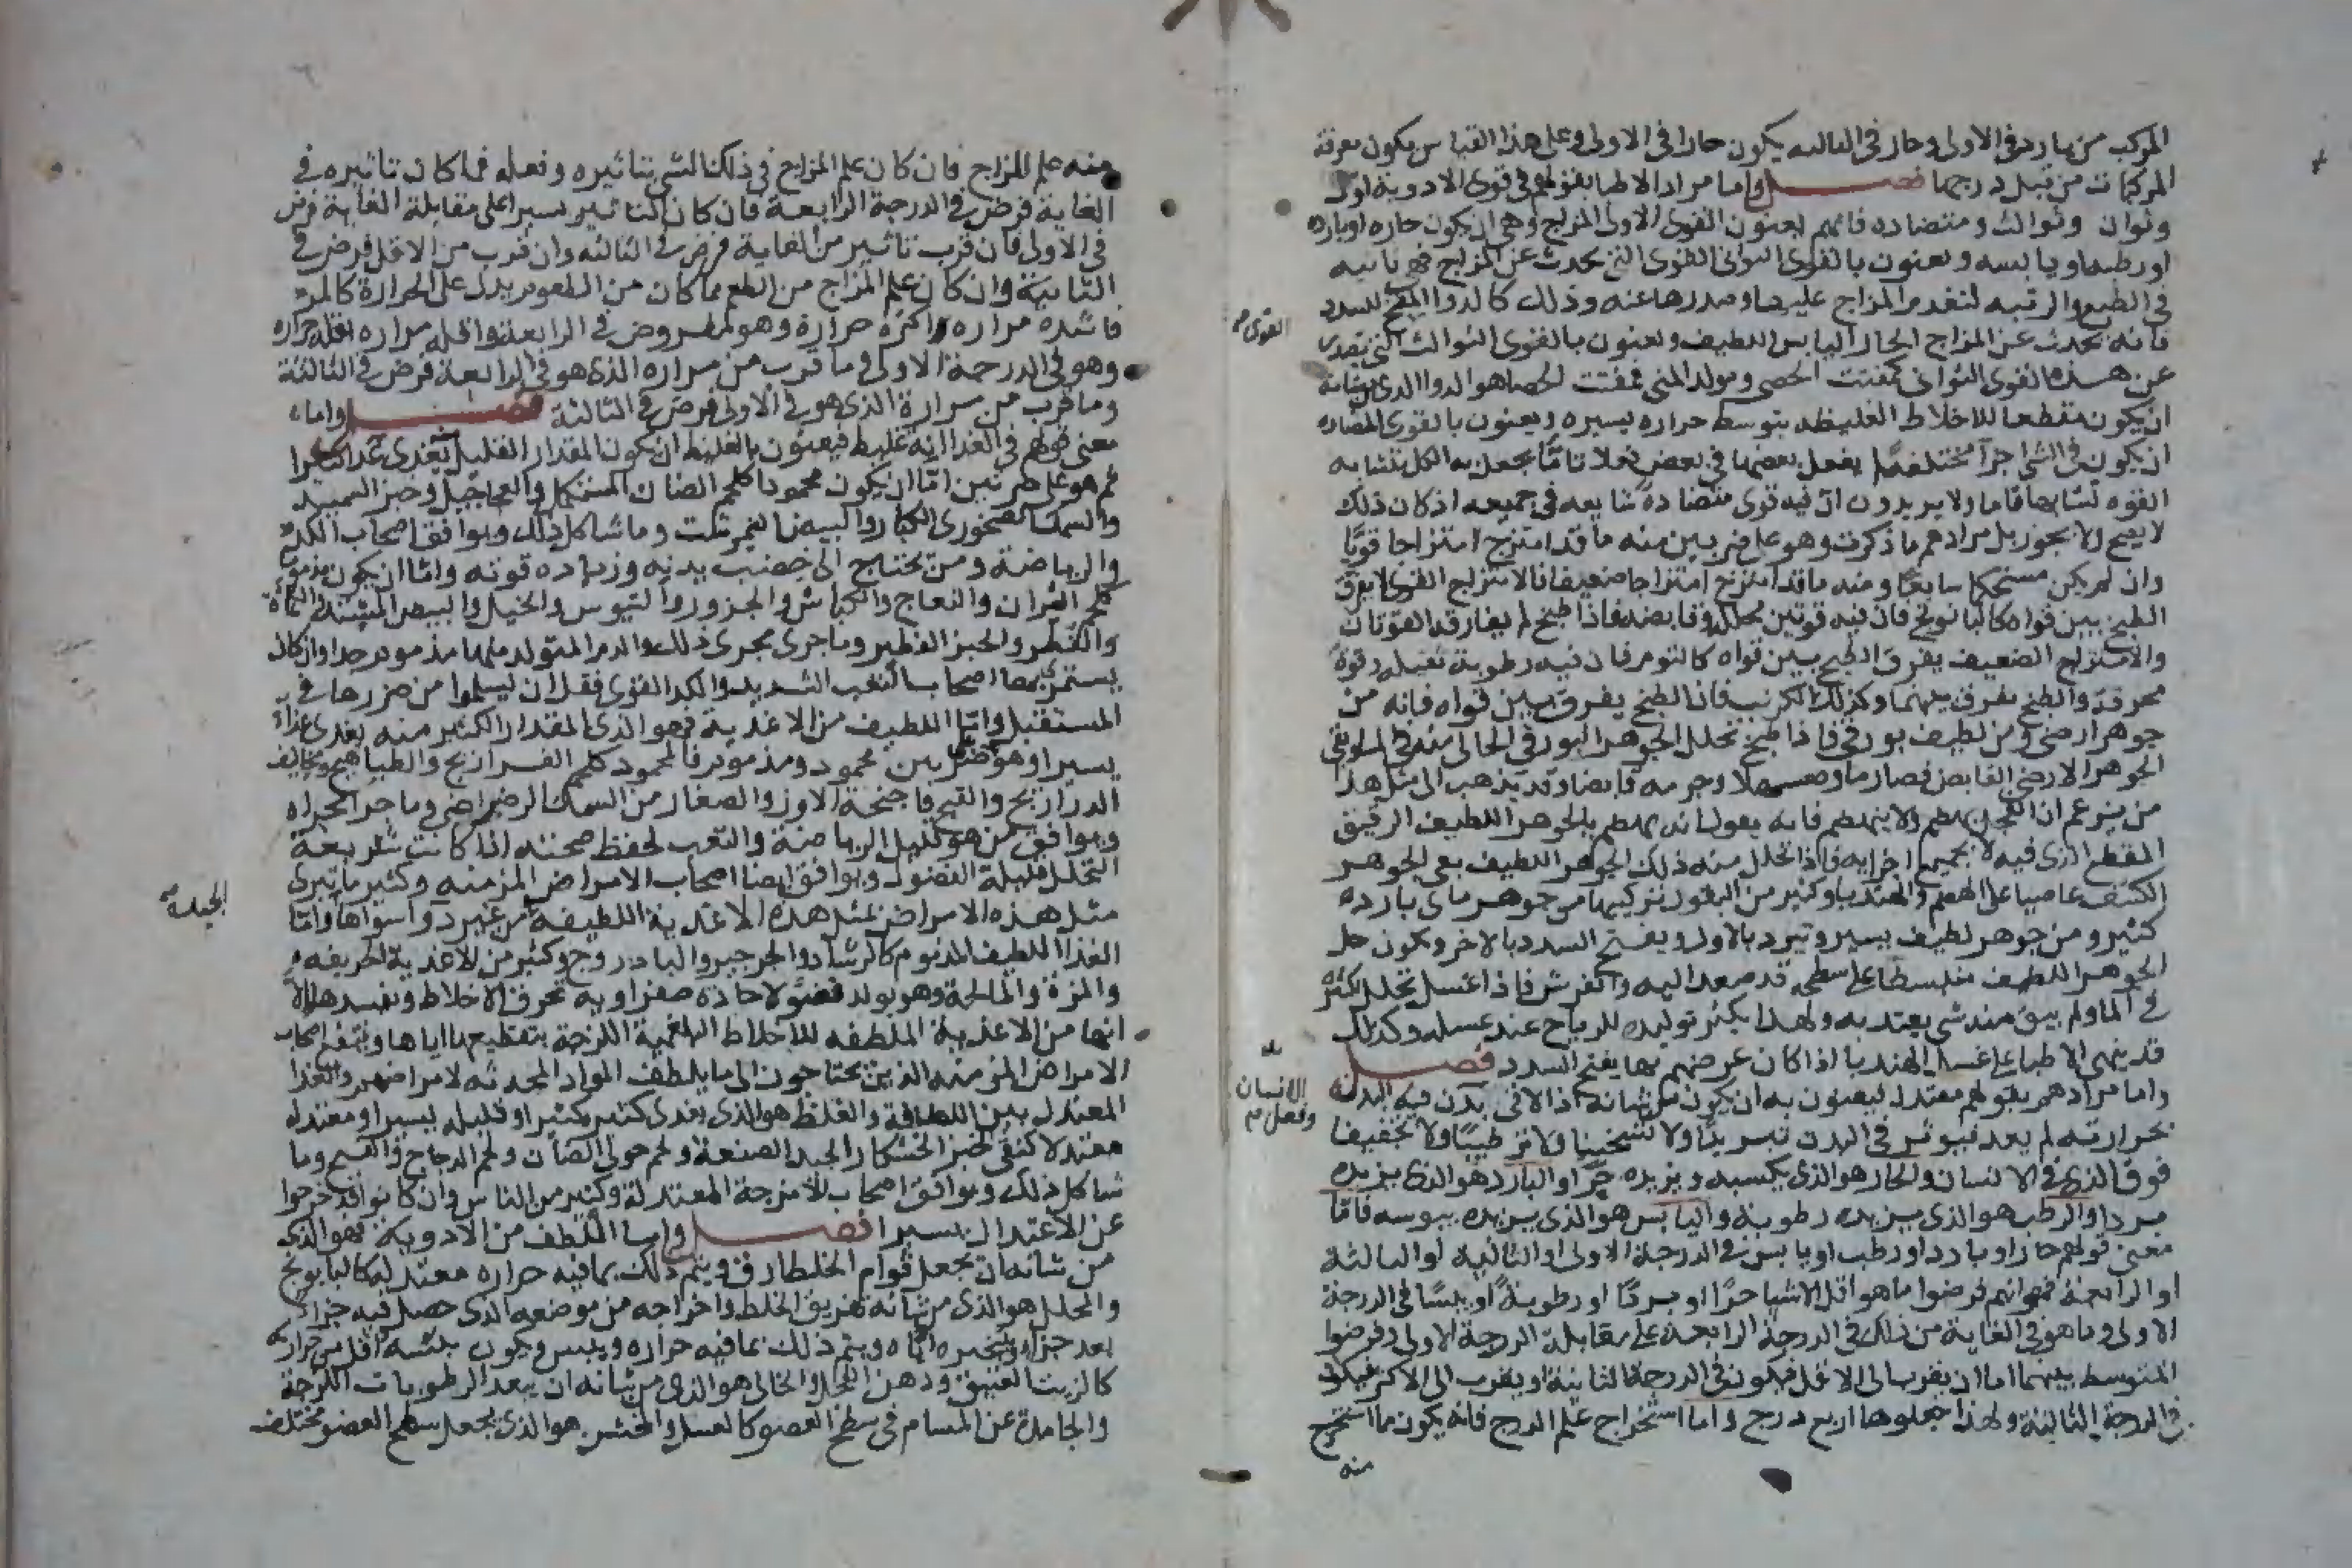 المركب من بارد فى الاولى وحار فى الثالثه يكون حارا فى الاولى وعلى هذا القياس يكون معرفة
المركبات من قبل درجها فصل واما مراد الاطبا بقولهم فى قوى الادوية اول
وثوان وثوالث ومتضاده فانهم يعنون القوى الاول المزاج وهى ان يكون حاره او بارده
او رطبه او يابسه ويعنون بالقوى الثوانى القوى التى تحدث عن المزاج فهى ثانيه
فى الطبع والرتبه لتقدم المزاج عليها وصدرها عنه وذلك كالدوا المفتح للسدد
فانه يحدث عن المزاج الحار اليابس اللطيف ويعنون بالقوى الثوالث التى تصدر
عن هذه القوى الثوانى كمفتت الحصى ومولد المنى فمفتت الحصا هو الدوا الذى شانه
ان يكون مقطعا للاخلاط الغليظه بتوسط حراره يسيره ويعنون بالقوى المتضاده
ان يكون فى الشى اجزآ مختلفه يفعل بعضها فى بعض فعلا تامًّا يجعل به الكل متشابه
القوه تشابها تاما ولا يريدون ان فيه قوى متضادة شايعه فى جميعه اذ كان ذلك
لا يصح ولا يجوز بل مرادهم ما ذكرت وهو على ضربين منه ما قد امتزج امتزاجا قويًّا
وان لم يكن مستحكما سابعًا ومنه ما قد امتزج امتزاجا ضعيفا فالامتزاج القوى لا يفرق
الطبخ بين قواه كالبابونج فان فيه قوتين محلله وقابضه فاذا طبخ لم يفارقه القوتان
والامتزاج الضعيف يفرق الطبخ بين قواه كالثوم فان فيه رطوبة ثقيله وقوة
محرقة والطبخ يفرق بينهما وكذلك الكرنب فان الطبخ يفرق بين قواه فانه من
جوهر ارضى ومن لطيف بورقى فاذا طبخ تحلل الجوهر البورقى الجالى منه فى الما وبقى
الجوهر الارضى القابض فصار ماوه مسهلا وجرمه قابضا وقد يذهب الى مثل هذا
من يزعم ان الفجل يهضم ولا ينهضم فانه يقول انه يهضم بالجوهر اللطيف الرقيق
المقطع الذى فيه لا بجميع اجزايه فاذا تحلل منه ذلك الجوهر اللطيف بقى الجوهر
الكثيف عاصيا على الهضم والهندبا وكثير من البقول تركيبها من جوهر ماى بارده
كثير ومن جوهر لطيف يسير وتبرد بالاول ويفتح السدد بالاخر ويكون جل
الجوهر اللطيف منبسطًا على سطحه قد صعد اليه وانفرش فاذا غسل تحلل اكثره
فى الما ولم يبق منه شى يعتد به ولهذا يكثر توليده للرياح عند غسله وكذلك
قد ينهى الاطبا على غسل الهندبا اذا كان غرضهم بها يفتح السدد فصل
واما مرادهم بقولهم معتدل فيعنون به ان يكون من شانه اذا لاقى بدن فيه البدن
بحرارته لم يعد فيوثر فى البدن تبريدًا ولا تسخينا ولا ترطيبًا ولا تجفيفا
فوق الذى فى الانسان والحار هو الذى يكسبه ويزيده حرًّا والبارد هو الذى يزيده
بردا والرطب هو الذى يزيده رطوبة واليابس هو الذى يزيده يبوسه فاما
معنى قولهم حار او بارد او رطب او يابس فى الدرجة الاولى او الثانيه او الثالثه
او الرابعة فهو انهم فرضوا ما هو اقل الاشيا حرًّا او بردًا او رطوبةً او يبسًا فى الدرجة
الاولى وما هو فى الغاية من ذلك فى الدرجة الرابعة على مقابلة الدرجة الاولى وفرضوا
المتوسط بينهما اما ان يقرب الى الاقل فيكون فى الدرجة الثانية او يقرب الى الاكثر فيكون
فى الدرجة الثالثة ولهذا جعلوها اربع درج واما استخراج علم الدرج فانه يكون مما استخرج
منه
القوى
الانسان
وفعل
منه علم المزاج فان كان علم المزاج فى ذلك الشى بتاثيره وفعله فما كان تاثيره فى
الغاية فرض فى الدرجة الرابعة فان كان التاثير يسيرا على مقابلة الغاية فرض
فى الاولى فان قرب تاثيره من الغاية فرض فى الثالثه وان قرب من الاقل فرض فى
الثانية وان كان علم المزاج من الطعم فما كان من الطعوم يدل على الحرارة كالمر
فاشده مراره اكثره حرارة وهو المفروض فى الرابعة واقله مراره اقله حراره
وهو فى الدرجة الاولى وما قرب من مراره الذى هو فى الرابعة فرض فى الثالثة
وما قرب من مرارة الذى هو فى الاولى فرض فى الثالثة فصل واما
معنى قولهم فى الغذا انه غليظ فيعنون بالغليظ ان يكون المقدار القليل يغذى غذا كثيرا
ثم هو على ضربين امّا ان يكون محمودا كلحم الضان المستكمل والعجاجيل وخبز السميد
والسمك الصخورى الكبار والبيض النيمرشت وما شاكل ذلك ويوافق اصحاب الكد
والرياضة ومن يحتاج الى خصب بدنه وزياده قوته وامّا ان يكون مذموما
كلحم الثيران والنعاج والكباش والجزور والتيوس والخيل والبيض المشتد والكمأة
والفُطر والخبز الفطير وما جرى مجرى ذلك والدم المتولد منها مذموم جدا وان كان
يستمريها اصحاب التعب الشديد والكبد القوى فقل ان يسلموا من ضررها فى
المستقبل وامّا اللطيف من الاغذية فهو الذى المقدار الكثير منه يغذى غذاء
يسيرا وهو ضربين محمود ومذموم فالمحمود كلحم الفراريج والطياهيج ومخاليف
الدراريج والقبج واجنحة الاوز والصغار من السمك الرضراضى وما جرا مجراه
ويوافق من هو قليل الرياضة والتعب لحفظ صحته اذا كانت سريعة
التحلل قليلة الفضول ويوافق ايضا اصحاب الامراض المزمنه وكثير ما تبرى
مثل هذه الامراض بمثل هذه الاغذية اللطيفة من غير دوآ سواها وامّا
الغذا اللطيف المذموم كالرشاد والجرجير والباذروج وكثير من الاغذية الحريفه
والمزة والمالحة وهو يولد فضولا حاده صفراويه تحرق الاخلاط وتفسدها الا
انها من الاغذية الملطفه للاخلاط البلغمية اللزجة بتقطيعها اياها وينتفع اصحاب
الامراض المزمنه الذين يحتاجون الى ما يلطف المواد المحدثه لامراضهم والغذا
المعتدل بين اللطافة والغلظ هو الذى يغذى كثيره كثيرا وقليله يسيرا ومعتدله
معتدلا كنقى خبز الخشكار الجيد الصنعة ولحم حولى الضأن ولحم الدجاج والقبج وما
شاكل ذلك ويوافق اصحاب الامزجة المعتدلة وكثير من الناس وان كانوا قد خرجوا
عن الاعتدال يسيرا فصل واما الملطف من الادوية فهو الذى
من شانه ان يجعل قوام الخلط ارق ويتم ذلك بما فيه حراره معتدله كالبابونج
والمحلل هو الذى من شانه تفريق الخلط واخراجه من موضعه الذى حصل فيه جزاء
بعد جزاء وتبخيره اياه ويتم ذلك بما فيه حراره ويبس ويكون يبسه اقل من حراره
كالزيت العتيق ودهن الفجل والجالى هو الذى من شانه ان يبعد الرطوبات اللزجة
والجامدة عن المسام فى سطح العضو كالعسل والمخشن هو الذى يجعل سطح العضو مختلف
الجيدة